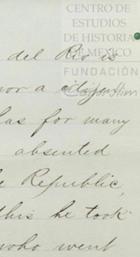 CENTRO DE
ESTUDIOS
DE HISTORIA
DE MÉXICO
del Rio is
FUNDACIÓN
nor a citizen
has for many
absented
Republic,
this he took
who went